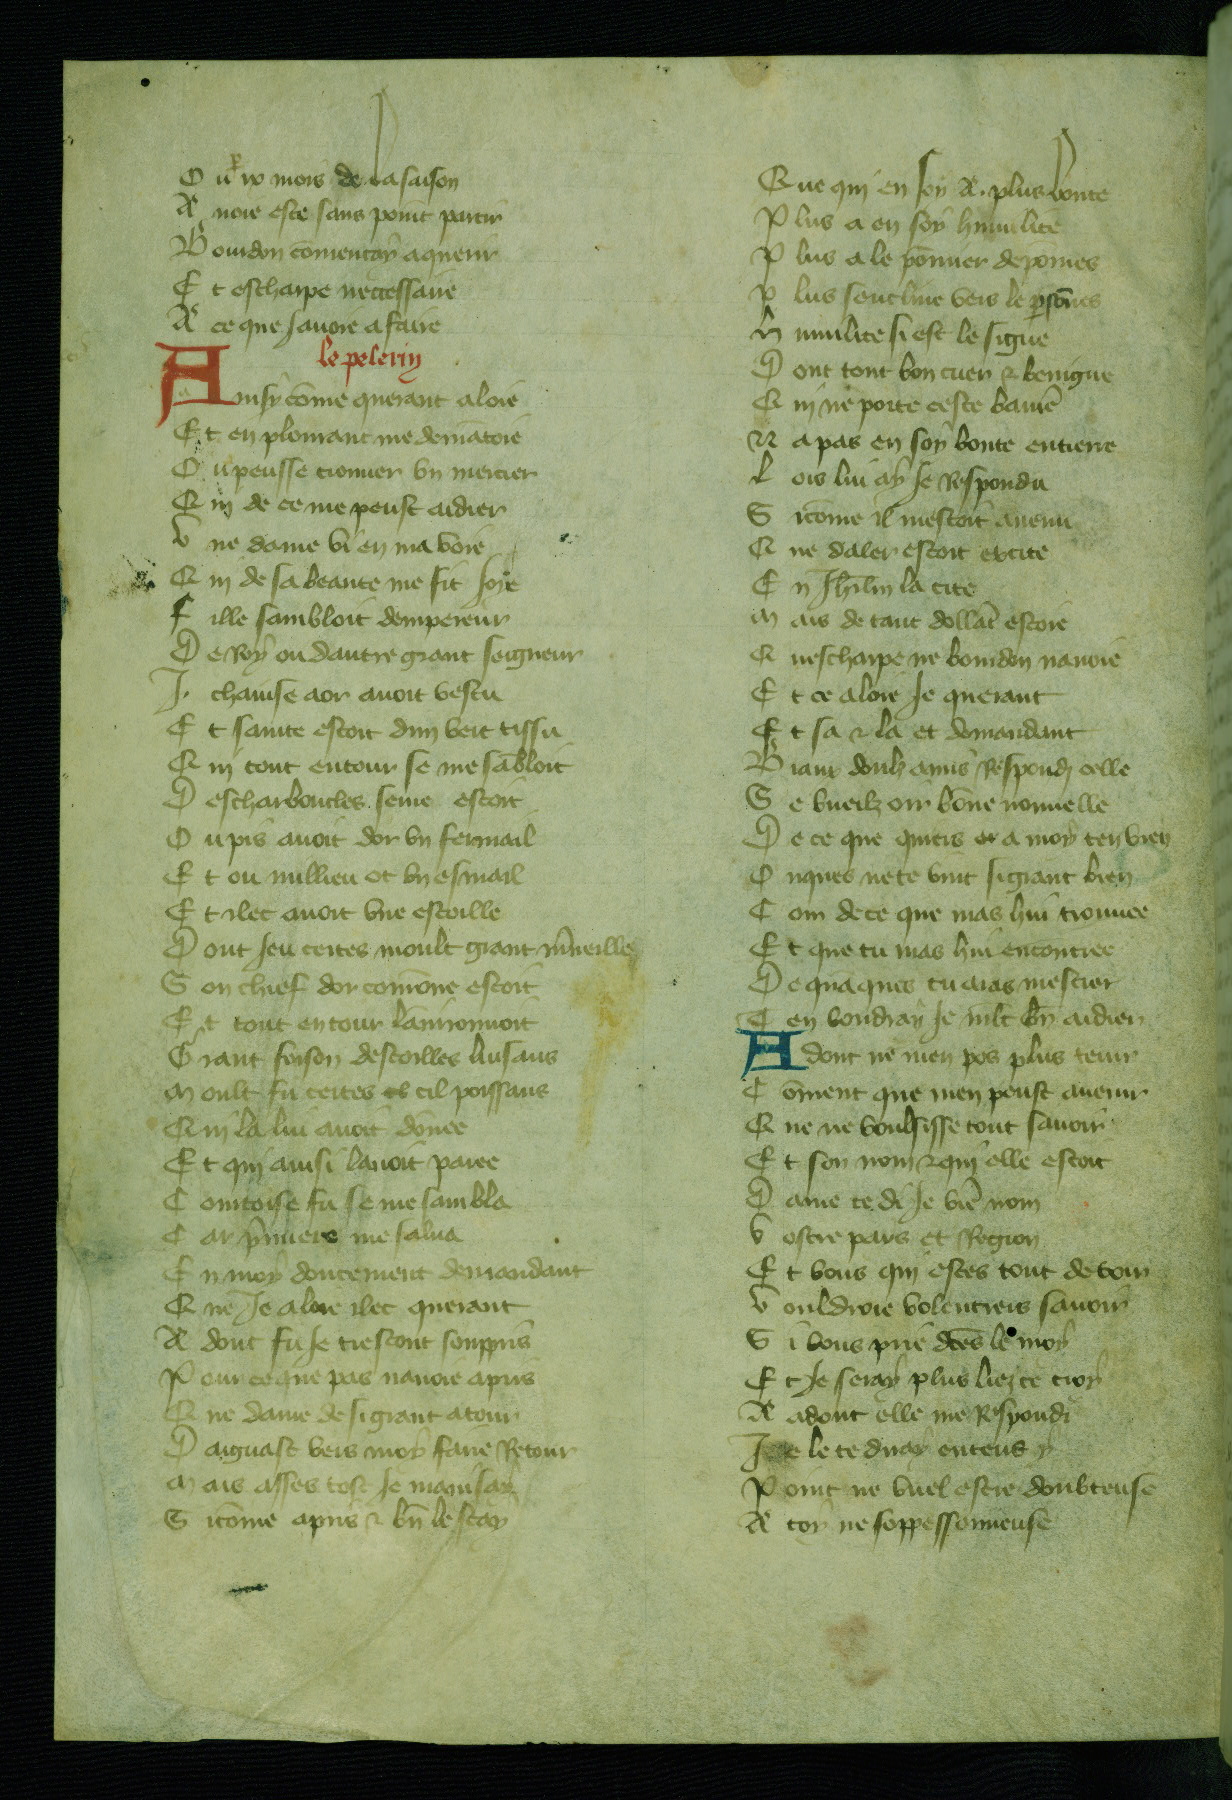 O u ix mois de la saison
A uoie este sans point partir
B ourdon cōmencay a querir
E t escharpe neccessaire
A ce que Jauoie a faire
le pelerin
A insy cōme querant aloie
E t en plourant me demātoie
O u peusse trouuer vn mercier
Q ui de ce me peust aidier
V ne dame vi en ma voie
Q ui de sa beaute me fit Joye
F ille sambloit dempereur
D e Roy ou dautre grant seigneur
J . chainse a or auoit vestu
E t sainte estoit dun vert tissu
Q ui tout entour se me sābloit
D escharboucles seme estoit
O u pis auoit dor vn fermail
E t ou millieu ot vn esmail
E t ilec auoit vne estoille
D ont Jeu certes moult grant m̄ueille
S on chief dor corōne estoit
E t tout entour lauironnoit
G rant foison destoilles luisans
M oult fu certes cil poissans
Q ui la lui auoit dōnee
E t qui ainsi lauoit paree
C ourtoise fu se me sambla
C ar p̄miere me salua
E n moy doucement demandant
Q ue Je aloie ilec querant
A dont fu Je trestout souppris
P our ce que pas nauoie apris
Q ue dame de si grant atour
D aignast vers moy faire Retour
M ais asses tost Je mauisay
S icōme apris & bn̄ le scay
Q ue qui en soy A. plus bonte
P lus a en soy humilite
P lus a le pōmier de pomes
P lus sencline vers le p̄sōnes
H umilite si est le signe
D ont tout bon cuer & benigne
Q ui ne porte ceste baniē
N a pas en soy bonte entiere
L ors lui ay Je Respondu
S icōme il mestoit auenu
Q ue daler estoit excite
E n Jhrlm la cite
M ais de tant dollāt estoie
Q uescharpe ne bourdon nauoie
E t ce aloie Je querant
E t sa & la et demandant
B iaux doulz amis Respondi celle
S e vueilz oir bōne nouuelle
D e ce que quiers a moy ten vien
O nques ne te vint si grant bien
C om de ce que mas hui trouuee
E t que tu mas hui encontree
D e quaques tu aras mestier
T en voudray Je mlt bn̄ aidier
A dont ne men pos plus tenir
C ōment que men peust auenir
Q ue ne voulsisse tout sauoir
E t son nom & qui elle estoit
D ame ce di Je vr̄e nom
V ostre pais et Region
E t vous qui estes tout de voir
V ouldroie volentreis sauoir
S i vous prie dtēs le moy
E t Je seray plus liez ce croy
A adont elle me Respondi
J e le te diray entens y
P oint ne vuel estre doubteuse
A toy ne souppessonneuse